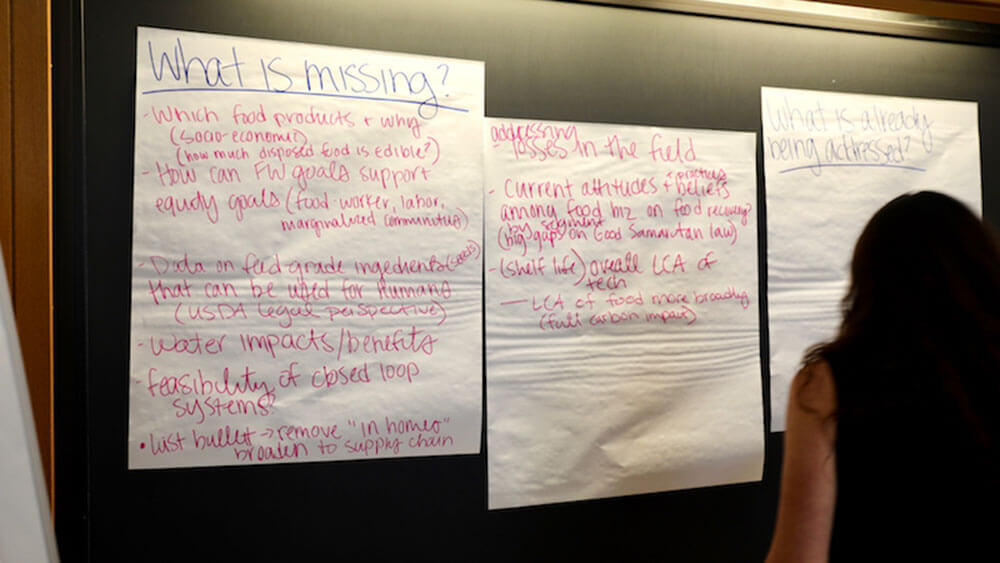 What is missing?
- Which food products + why
(socio-economic)
(how much disposed food is edible?)
- How can FW goals support
equity goals (food-worker, labor,
marginalized communities)
- Data on feed grade ingredients (seeds)
that can be used for humans
(USDA legal perspective)
- Water impacts/benefits
- feasibility of closed loop
systems?
• last bullet → remove "in homes"
broaden to supply chain
addressing
- losses in the field
- Current attitudes + practices
beliefs
among food biz on food recovery?
by segment
(big gaps on Good Samaritan law)
- (shelf life) overall LCA of
tech
— LCA of food more broadly
(full carbon impact)
What is already
being addressed?